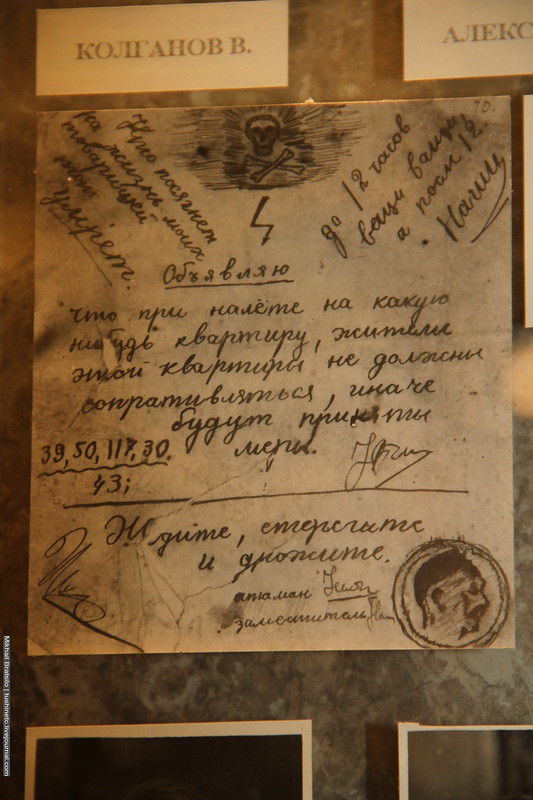 КОЛГАНОВ В.
АЛЕКС
Кто посягнет
на жизнь моих
товарищей
тот
умрёт.
до 12 часов
вещи ваши,
а посли 12.
Наши
Объявляю
что при налёте на какую
нибудь квартиру, жители
этой квартиры не должны
сопративляться, иначе
будут приняты
меры.
39, 50, 117, 30.
43;
Ждите, стерегите
и дрожите.
атаман
заместитель
Mikhail Bratsilo | tushinetc.livejournal.com